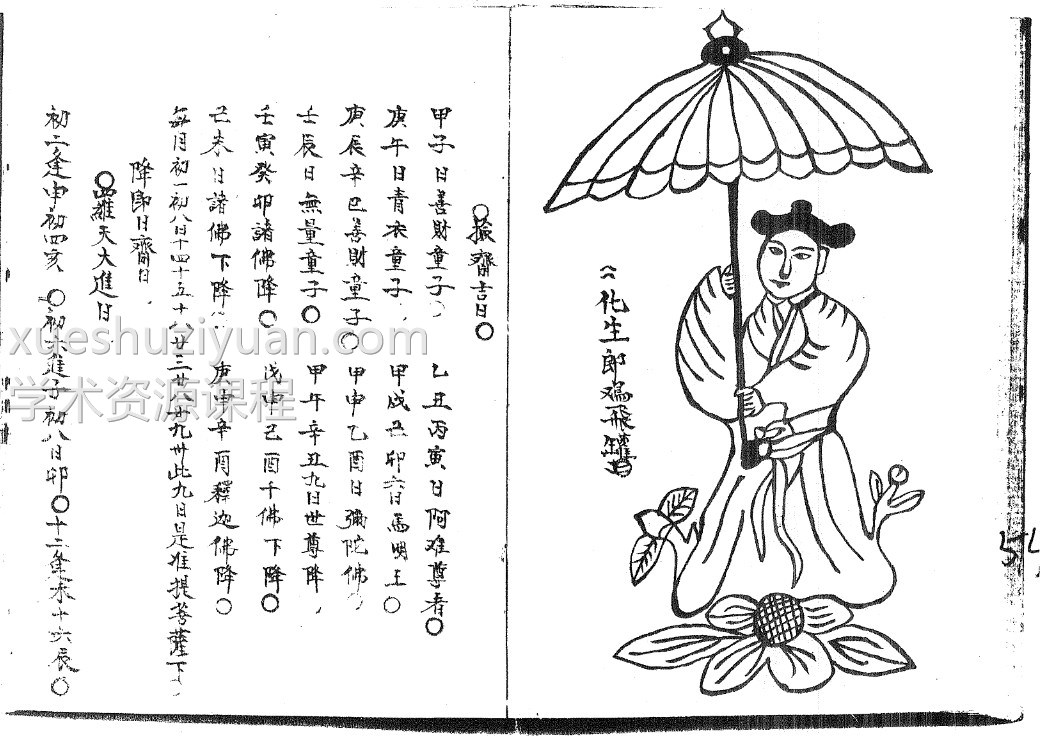 化生郎
齋吉日
甲子日善財童子 乙丑丙寅日阿难尊者
庚午日青衣童子 甲戌丑卯六日馬明王
庚辰辛巳善財童子 甲申乙酉日彌陀佛
壬辰日無量童子 甲午辛丑九日世尊降
壬寅癸卯諸佛降 戊申己酉千佛下降
己未日諸佛下降 庚申辛酉釋迦佛降
每月初一初八日十四十五十八廿三廿八廿九卅此九日是准提菩薩下
降即日齋日
天大進日
初二逢申初四亥 初六進子初八日卯 十二逢未十六辰
xueshuziyuan.com
学术资源课程